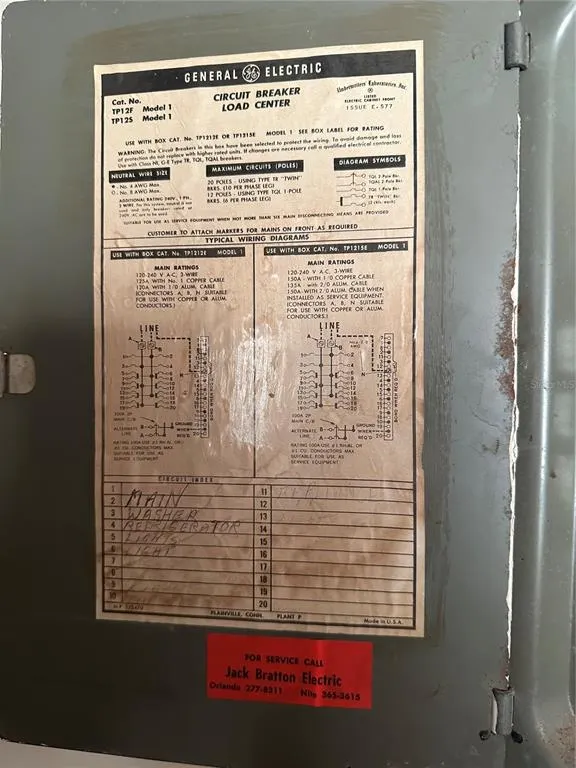 GENERAL GE ELECTRIC
Cat. No.
TP12F Model 1
TP12S Model 1
CIRCUIT BREAKER
LOAD CENTER
Underwriters Laboratories, Inc.
LISTED
ELECTRIC CABINET FRONT
ISSUE E-577
USE WITH BOX CAT. No. TP1212E OR TP1215E MODEL 1 SEE BOX LABEL FOR RATING
WARNING: The Circuit Breakers in this box have been selected to protect the wiring. To avoid damage and loss
of protection do not replace with higher rated units. If changes are necessary call a qualified electrical contractor.
Use with Class NI, G-E Type TR, TQL, TQAL breakers.
NEUTRAL WIRE SIZE
No. 4 AWG Max.
No. 8 AWG Max.
ADDITIONAL RATING 240V., 1 PH.,
MAXIMUM CIRCUITS (POLES)
20 POLES - USING TYPE TR "TWIN"
BKRS. (10 PER PHASE LEG)
12 POLES - USING TYPE TQL 1-POLE
BKRS. (6 PER PHASE LEG)
DIAGRAM SYMBOLS
TQL 2-Pole Bkr.
TQAL 2-Pole Bkr.
TQL 1-Pole Bkr.
TR "TWIN" Bkr.
SUITABLE FOR USE AS SERVICE EQUIPMENT WHEN NOT MORE THAN SIX MAIN DISCONNECTING MEANS ARE PROVIDED
CUSTOMER TO ATTACH MARKERS FOR MAINS ON FRONT AS REQUIRED
TYPICAL WIRING DIAGRAMS
USE WITH BOX CAT. No. TP1212E MODEL 1
MAIN RATINGS
120-240 V A-C, 3-WIRE
125A WITH No. 1 COPPER CABLE
120A WITH 1/0 ALUM. CABLE
(CONNECTORS A, B, N SUITABLE
FOR USE WITH COPPER OR ALUM.
CONDUCTORS.)
LINE
100A 2P
MAIN C/B
ALTERNATE
LINE
GROUND
WHEN
REQ'D
SUITABLE FOR USE AS
SERVICE EQUIPMENT
USE WITH BOX CAT. No. TP1215E MODEL 1
MAIN RATINGS
120-240 V A-C, 3-WIRE
150A - WITH 1/0 COPPER CABLE
135A - WITH 2/0 ALUM. CABLE
150A- WITH 2/0 ALUM. CABLE WHEN
INSTALLED AS SERVICE EQUIPMENT.
(CONNECTORS A, B, N SUITABLE
FOR USE WITH COPPER OR ALUM.
CONDUCTORS.)
LINE
100A 2P
MAIN C/B
ALTERNATE
LINE
GROUND
WHEN
REQ'D
SUITABLE FOR USE AS
SERVICE EQUIPMENT
CIRCUIT INDEX
1
2 MAIN
3 WASHER
4 REFRIGERATOR
5 LIGHTS
6 LIGHT
7
8
9
10
11
12
13
14
15
16
17
18
19
20
PLAINVILLE, CONN. PLANT P
Made in U.S.A.
FOR SERVICE CALL
Jack Bratton Electric
Orlando 277-8311 Nite 365-3615
Stellar MLS